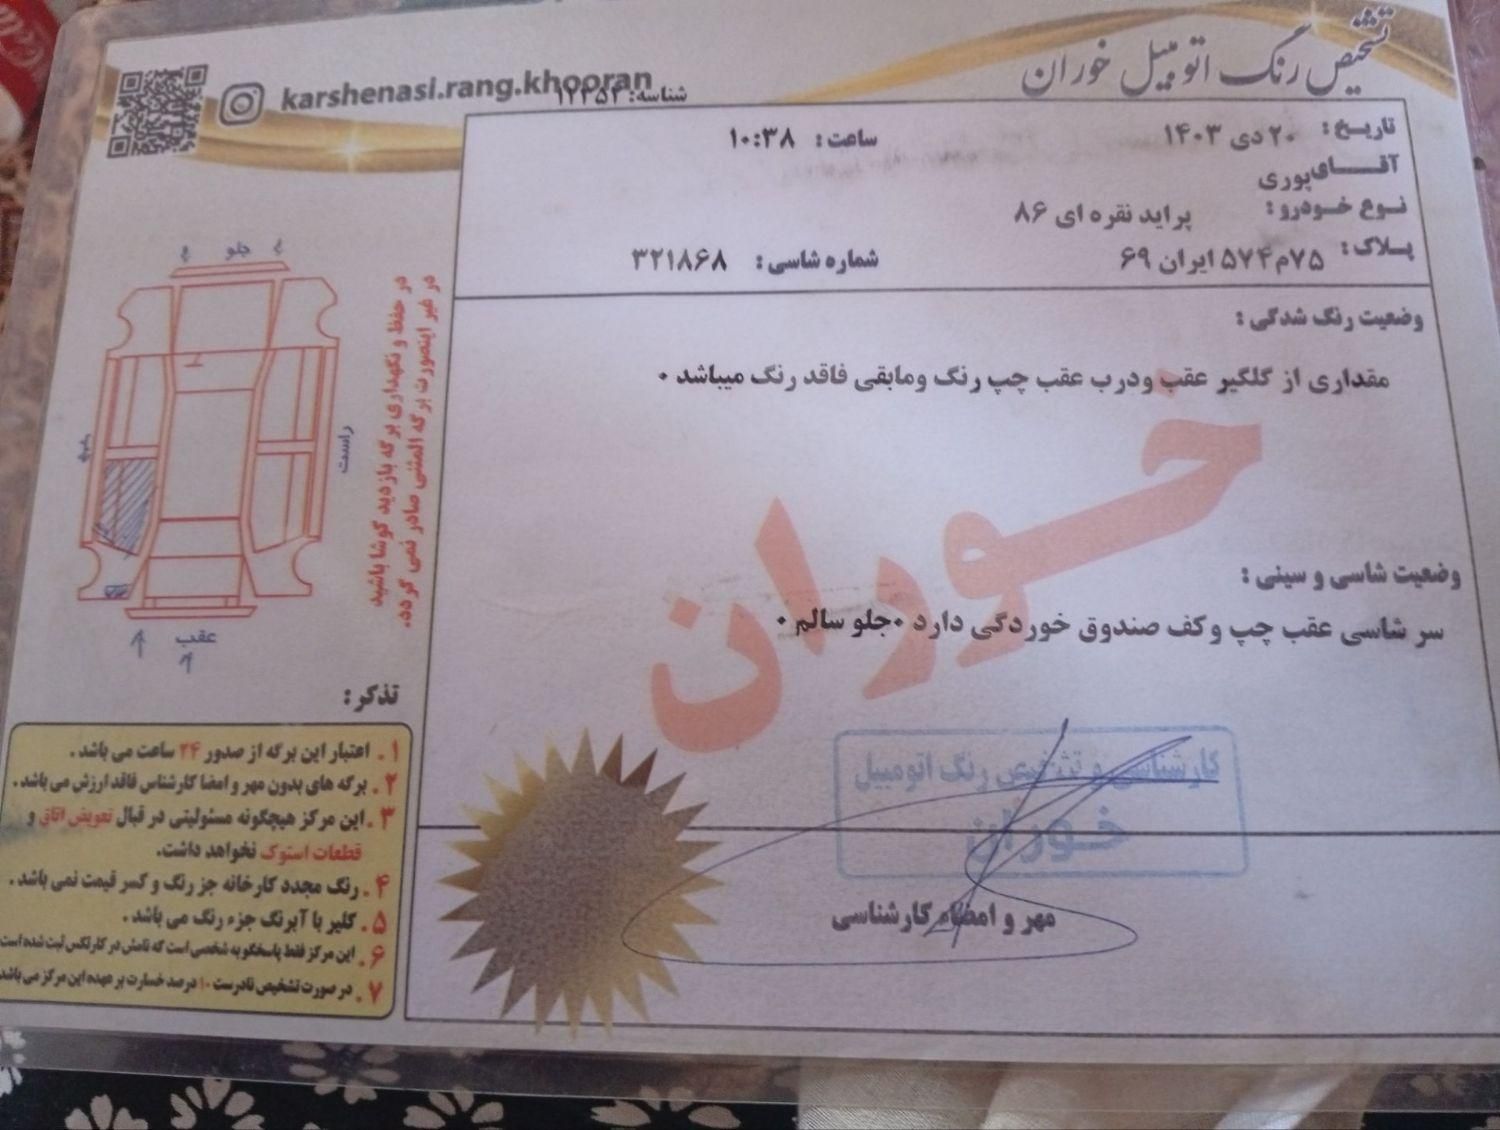 تشخیص رنگ اتومبیل خوران
karshenasi.rang.khooran
شناسه: ۱۲۳۵۳
تاریخ: ۲۰ دی ۱۴۰۳ ساعت: ۱۰:۳۸
آقای پوری
نوع خودرو: پراید نقره ای ۸۶
پلاک: ۷۵م۵۷۴ ایران ۶۹ شماره شاسی: ۳۲۱۸۶۸
وضعیت رنگ شدگی:
مقداری از گلگیر عقب ودرب عقب چپ رنگ ومابقی فاقد رنگ میباشد ۰
خوران
وضعیت شاسی و سینی:
سر شاسی عقب چپ وکف صندوق خوردگی دارد ۰جلو سالم ۰
کارشناسی و تشخیص رنگ اتومبیل
خوران
مهر و امضاء کارشناسی
جلو
راست
عقب
در حفظ و نگهداری برگه بازدید کوشا باشید
در غیر اینصورت برگه المثنی صادر نمی گردد.
تذکر:
۱. اعتبار این برگه از صدور ۲۴ ساعت می باشد.
۲. برگه های بدون مهر و امضا کارشناس فاقد ارزش می باشد.
۳. این مرکز هیچگونه مسئولیتی در قبال تعویض اتاق و
قطعات استوک نخواهد داشت.
۴. رنگ مجدد کارخانه جز رنگ و کسر قیمت نمی باشد.
۵. کلیر با آبرنگ جزء رنگ می باشد.
۶. این مرکز فقط پاسخگو به شخصی است که نامش در کارتکس ثبت شده است
۷. در صورت تشخیص نادرست ۱۰ درصد خسارت بر عهده این مرکز می باشد